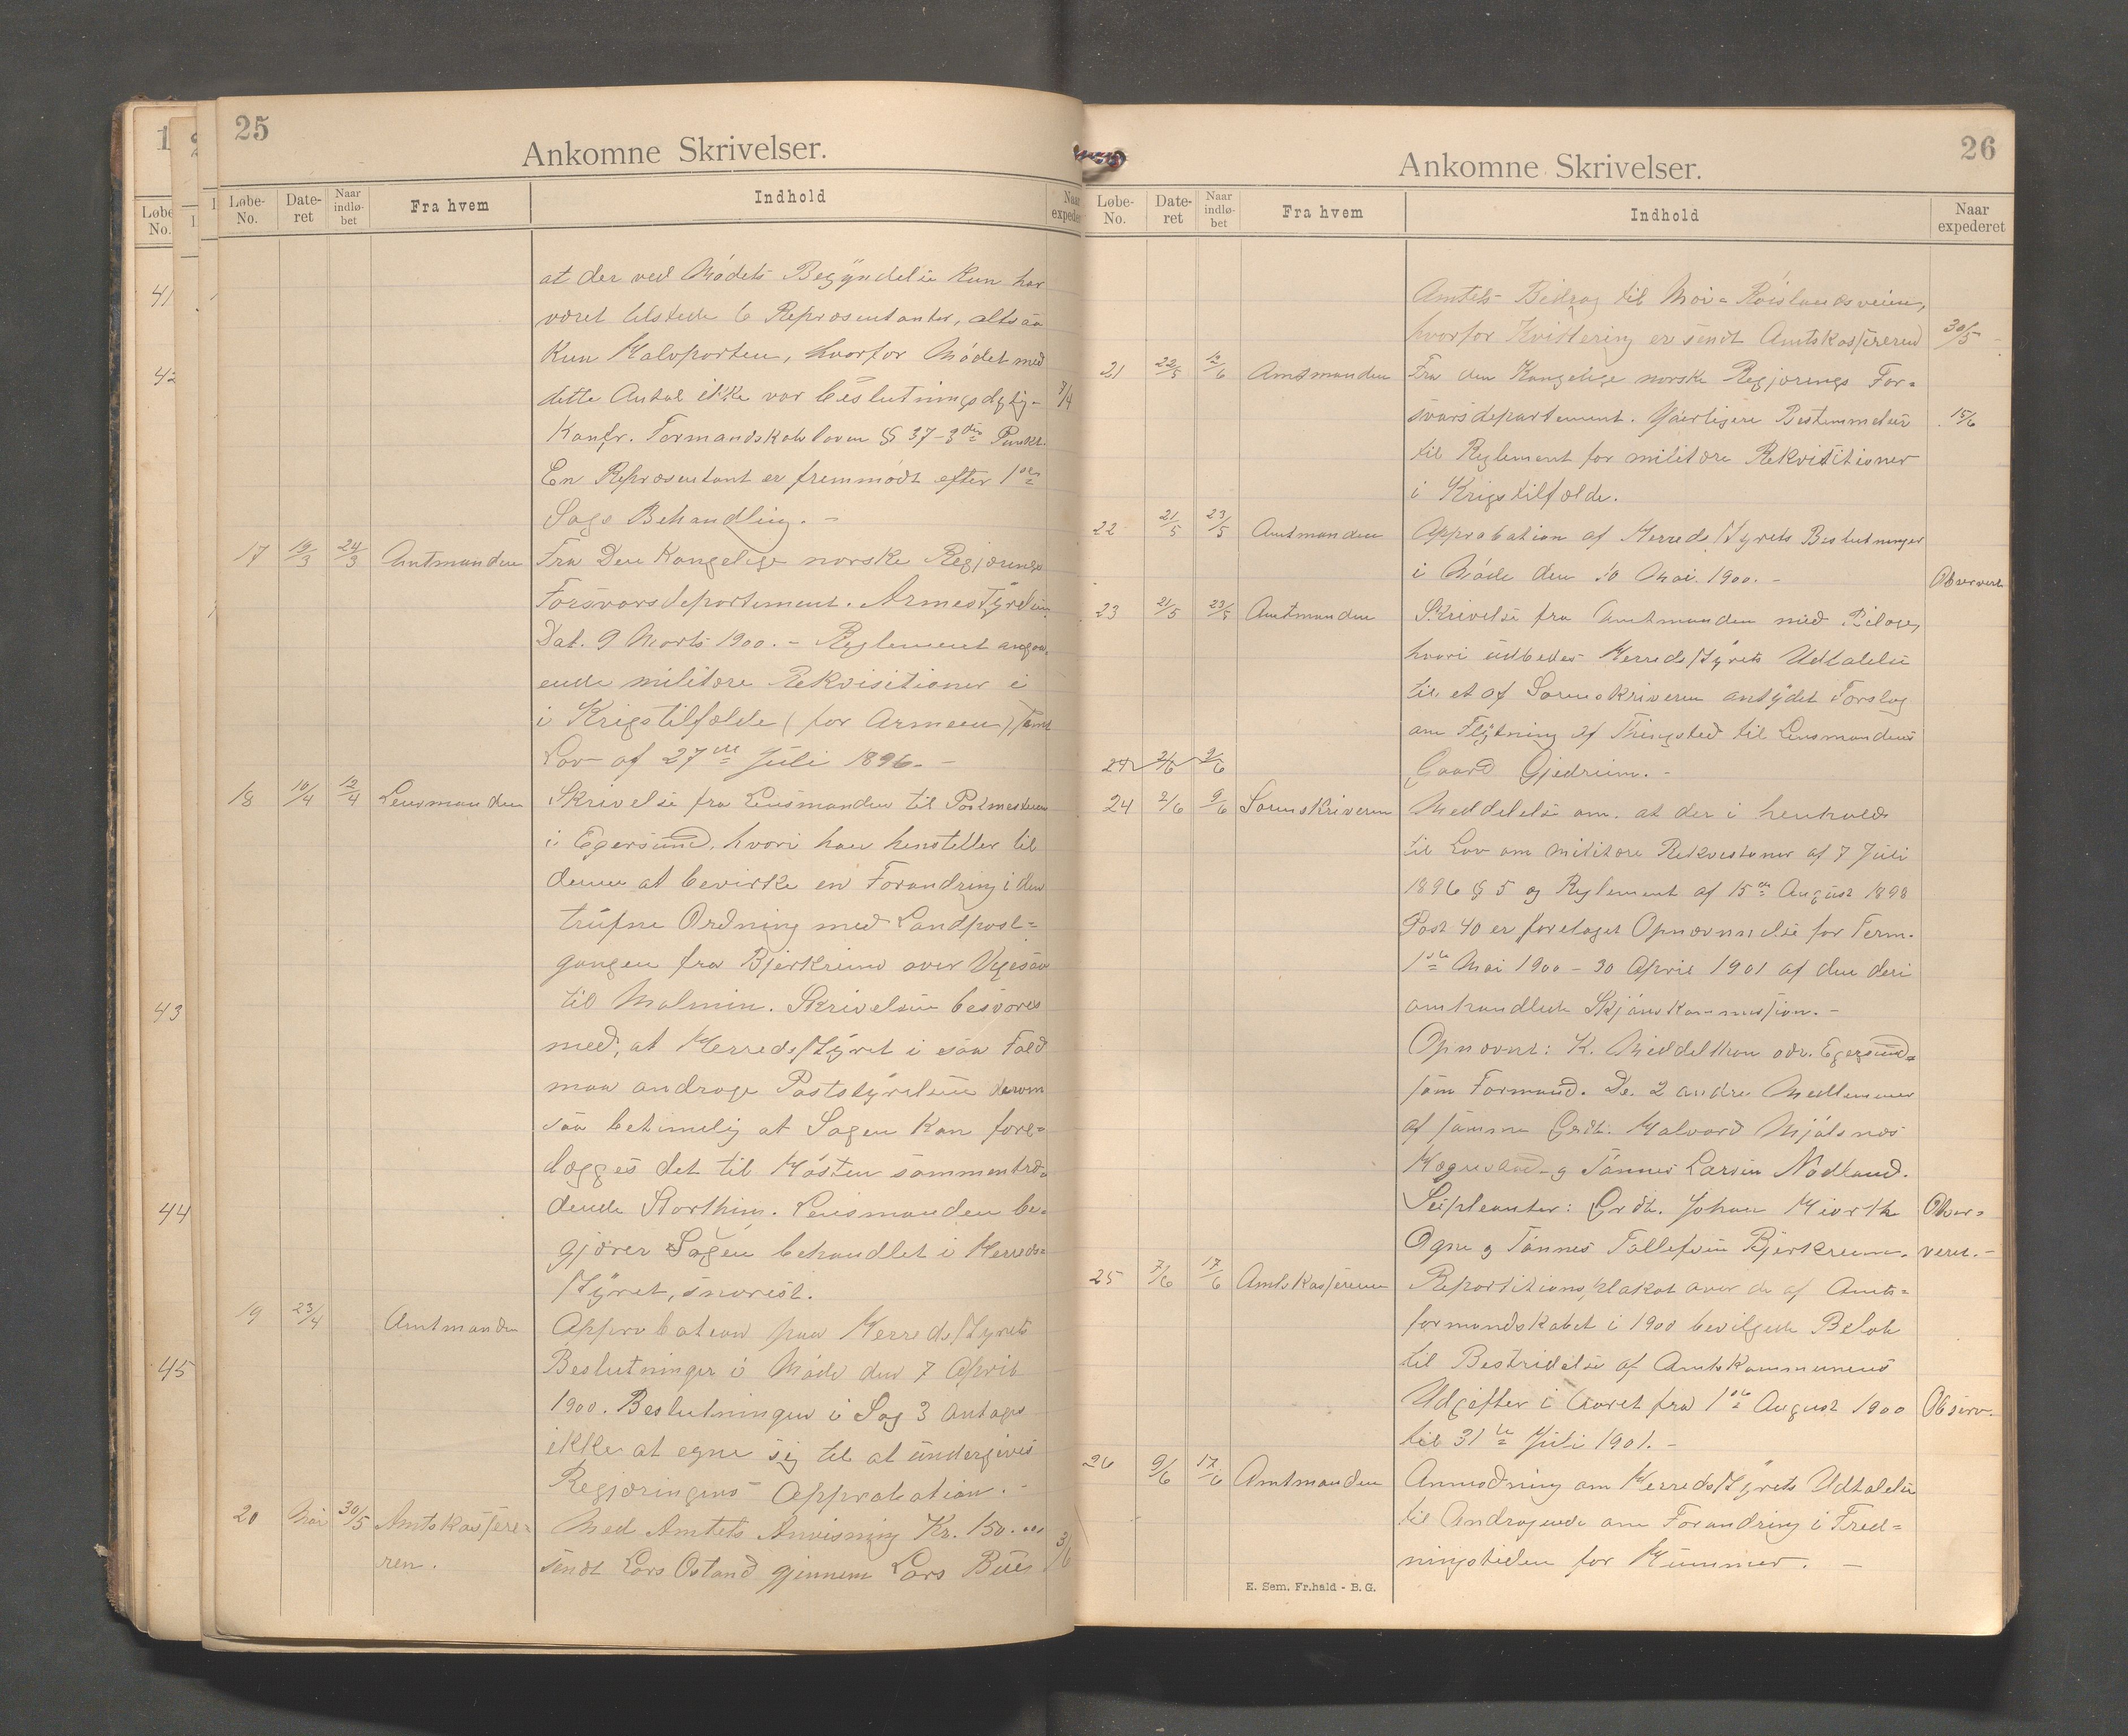 25
Ankomne Skrivelser.
Løbe-No. Date-ret Naar indlø-bet Fra hvem Indhold Naar expederet
at der ved Mødets Begyndelse kun har
været tilstede 6 Repræsentanter, altsaa
kun Halvparten, hvorfor Mødet med
dette Antal ikke var beslutningsdygtig- 7/4
Konfr. Formandskabsloven § 37 - 3die Punkt
En Repræsentant er fremmødt efter 1ste
Sags Behandling. -
17 19/3 24/3 Amtmanden Fra Den Kongelige norske Regjerings
Forsvarsdepartement. Armestyrelsen
Dat. 9 Marts 1900. - Reglement angaa-
ende militære Rekvisitioner i
i Krigstilfælde (for Armeen) samt
Lov af 27de Juli 1896. -
18 10/4 12/4 Lensmanden Skrivelse fra Lensmanden til Postmesteren
i Egersund, hvori han henstiller til
denne at bevirke en Forandring i den
trufne Ordning med Landpost-
gangen fra Bjerkreim over Vigesaa
til Malmin. Skrivelsen besvares
med, at Herredsstyret i saa Fald
maa andrage Poststyrelsen derom
saa betimelig at Sagen kan fore-
lægges det til Høsten sammentræ-
dende Storthing. Lensmanden be-
gjærer Sagen behandlet i Herreds-
styret, snarest.
19 23/4 Amtmanden Approbation paa Herredsstyrets
Beslutninger i Møde den 7 April
1900. Beslutningen i Sag 3 antages
ikke at egne sig til at undergives
Regjeringens Approbation. -
20 Mai 30/5 Amtskasserer- Med Amtets Anvisning Kr. 150.00 3/6
ren. sendt Lars Ostand gjennem Lars Bue
26
Ankomne Skrivelser.
Løbe-No. Date-ret Naar indlø-bet Fra hvem Indhold Naar expederet
Amtets Bidrag til Moi-Røislandsveien,
hvorfor Kvittering er sendt Amtskassereren 30/5
21 22/5 12/6 Amtmanden Fra den Kongelige norske Regjerings For-
svarsdepartement. Yderligere Bestemmelser 15/6
til Reglement for militære Rekvisitioner
i Krigstilfælde.
22 21/5 23/5 Amtmanden Approbation af Herredsstyrets Beslutninger
i Møde den 10 Mai 1900. - Observert
23 21/5 23/5 Amtmanden Skrivelse fra Amtmanden med Bilage,
hvori udbedes Herredsstyrets Udtalelse
til et af Sorenskriveren antydet Forslag
om Flytning af Thingsted til Lensmandens
24 2/6 9/6 Gaard Gjedrem. -
24 2/6 9/6 Sorenskriveren Meddelelse om, at der i henhold
til Lov om militære Rekvisitioner af 7 Juli
1896 § 5 og Reglement af 15de August 1898
Post 40 er foretaget Opnævnelse for Term.
1ste Mai 1900 - 30 April 1901 af den deri
omhandlede Skjønskommission. -
Opnævnt: K. Middelthon adv. Egersund-
som Formand. De 2 andre Medlemmer
af samme Grdb. Halvard Mjølsnes
Høgnestad og Tønnes Larsen Nødland.
Supleanter: Grdb. Johan Hiorth Obser-
Ogne og Tønnes Tollefsen Bjerkreim. vert. -
25 7/6 17/6 Amtskassereren Repartitionsplakat over de af Amts-
formandskabet i 1900 bevilgede Beløb
til Bestridelse af Amtskommunens
Udgifter i Aaret fra 1ste August 1900 Observ.
til 31te Juli 1901. -
26 9/6 17/6 Amtmanden Anmodning om Herredsstyrets Udtalelse
til Andragende om Forandring i Fred-
ningstiden for Hummer. -
E. Sem. Fr.hald - B. G.
41
42
43
44
45